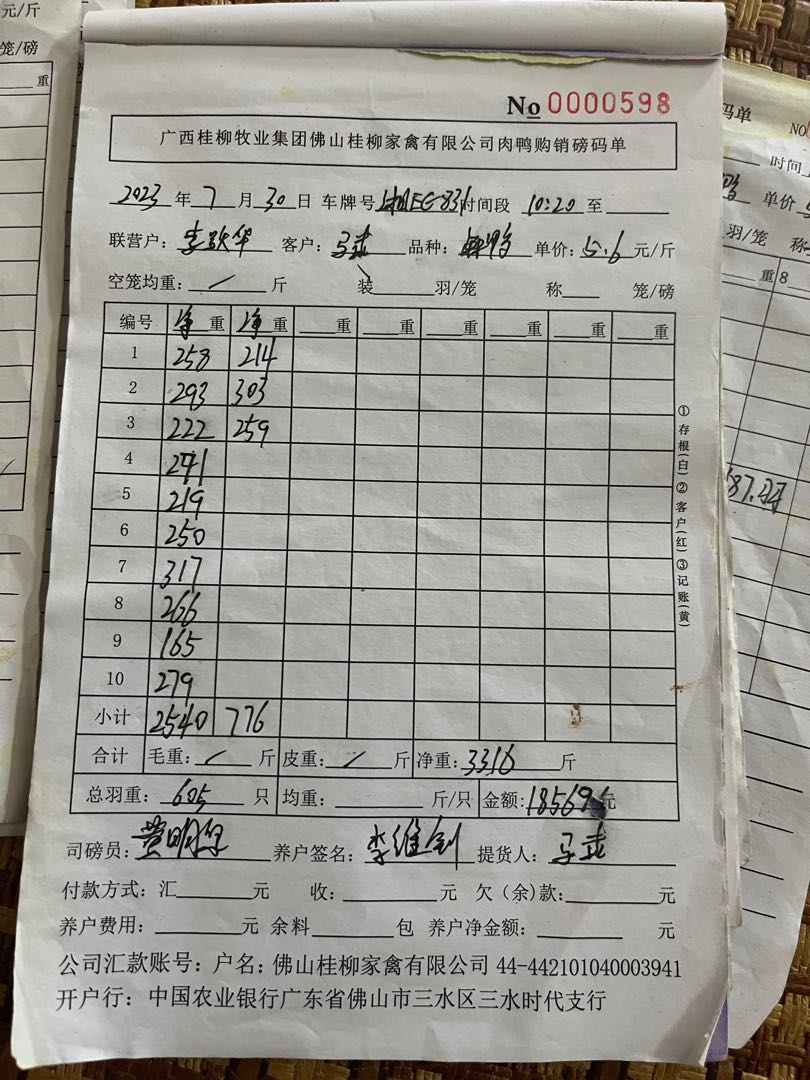 元/斤
笼/磅
重
No 0000598
广西桂柳牧业集团佛山桂柳家禽有限公司肉鸭购销磅码单
2023 年 7 月 30 日 车牌号 时间段 10:20 至
联营户: 客户: 品种: 单价: 5.6 元/斤
空笼均重: / 斤 装 羽/笼 称 笼/磅
编号 净重 净重 重 重 重 重 重 重
1 258 214
2 293 303
3 222 259
4 271
5 219
6 250
7 317
8 266
9 165
10 279
小计 2540 776
合计 毛重: / 斤 皮重: / 斤 净重: 3316 斤
总羽重: 605 只 均重: 斤/只 金额: 18569 元
司磅员: 养户签名: 提货人:
付款方式: 汇 元 收: 元 欠(余)款: 元
养户费用: 元 余料 包 养户净金额: 元
公司汇款账号: 户名: 佛山桂柳家禽有限公司 44-442101040003941
开户行: 中国农业银行广东省佛山市三水区三水时代支行
①存根(白)②客户(红)③记账(黄)
码单
NO
时间
单价
羽/笼 称
重 8